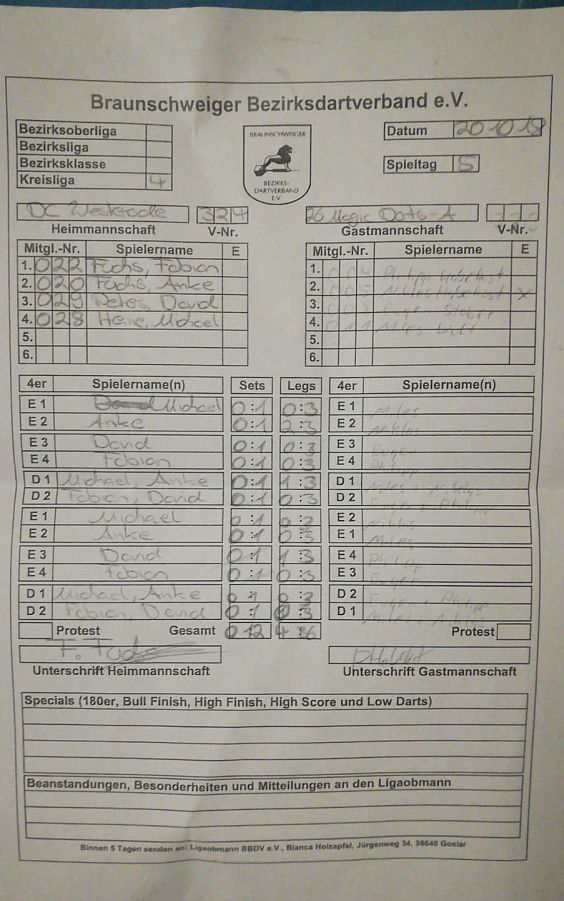 Braunschweiger Bezirksdartverband e.V.
Bezirksoberliga
Bezirksliga
Bezirksklasse
Kreisliga 4
BRAUNSCHWEIGER
BEZIRKS-
DARTVERBAND
E.V.
Datum 20 10 18
Spieltag 5
DC 324
Heimmannschaft V-Nr.
Magic Darts-A
Gastmannschaft V-Nr.
Mitgl.-Nr. Spielername E
1. 022 Fuchs, Fabian
2. 020 Fuchs, Anke
3. 029 David
4. 028 Michael
5.
6.
Mitgl.-Nr. Spielername E
1. Philipp
2.
3. X
4.
5.
6.
4er Spielername(n) Sets Legs 4er Spielername(n)
E 1 Michael 0:1 0:3 E 1 Miles
E 2 Anke 0:1 2:3 E 2 Niklas
E 3 David 0:1 0:3 E 3 Eugen
E 4 Fabian 0:1 0:3 E 4 Philipp
D 1 Michael, Anke 0:1 1:3 D 1
D 2 Fabian, David 0:1 0:3 D 2
E 1 Michael 0:1 0:3 E 2 Niklas
E 2 Anke 0:1 0:3 E 1 Miles
E 3 David 0:1 1:3 E 4 Philipp
E 4 Fabian 0:1 0:3 E 3 Eugen
D 1 Michael, Anke 0:1 0:3 D 2 Eugen + Philipp
D 2 Fabian, David 0:1 0:3 D 1
Protest Gesamt 0 12 4 36 Protest
F. Fuchs
Unterschrift Heimmannschaft Unterschrift Gastmannschaft
Specials (180er, Bull Finish, High Finish, High Score und Low Darts)
Beanstandungen, Besonderheiten und Mitteilungen an den Ligaobmann
Binnen 5 Tagen senden an: Ligaobmann BBDV e.V., Bianca Holzapfel, Jürgenweg 34, 38640 Goslar